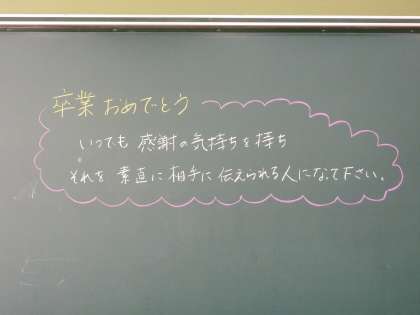 卒業おめでとう
いつでも 感謝の気持ちを持ち
それを 素直に相手に伝えられる人になって下さい。